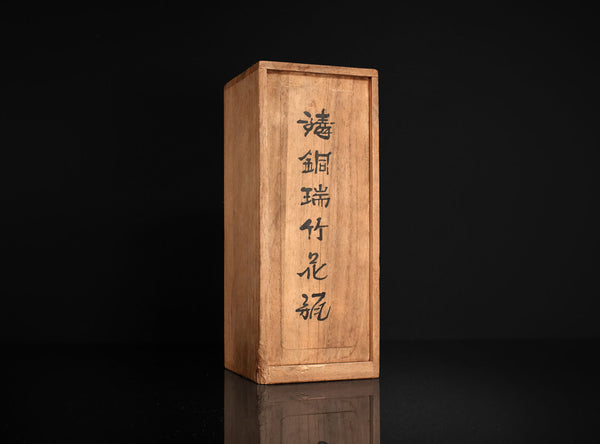 鋳銅瑞竹花瓶